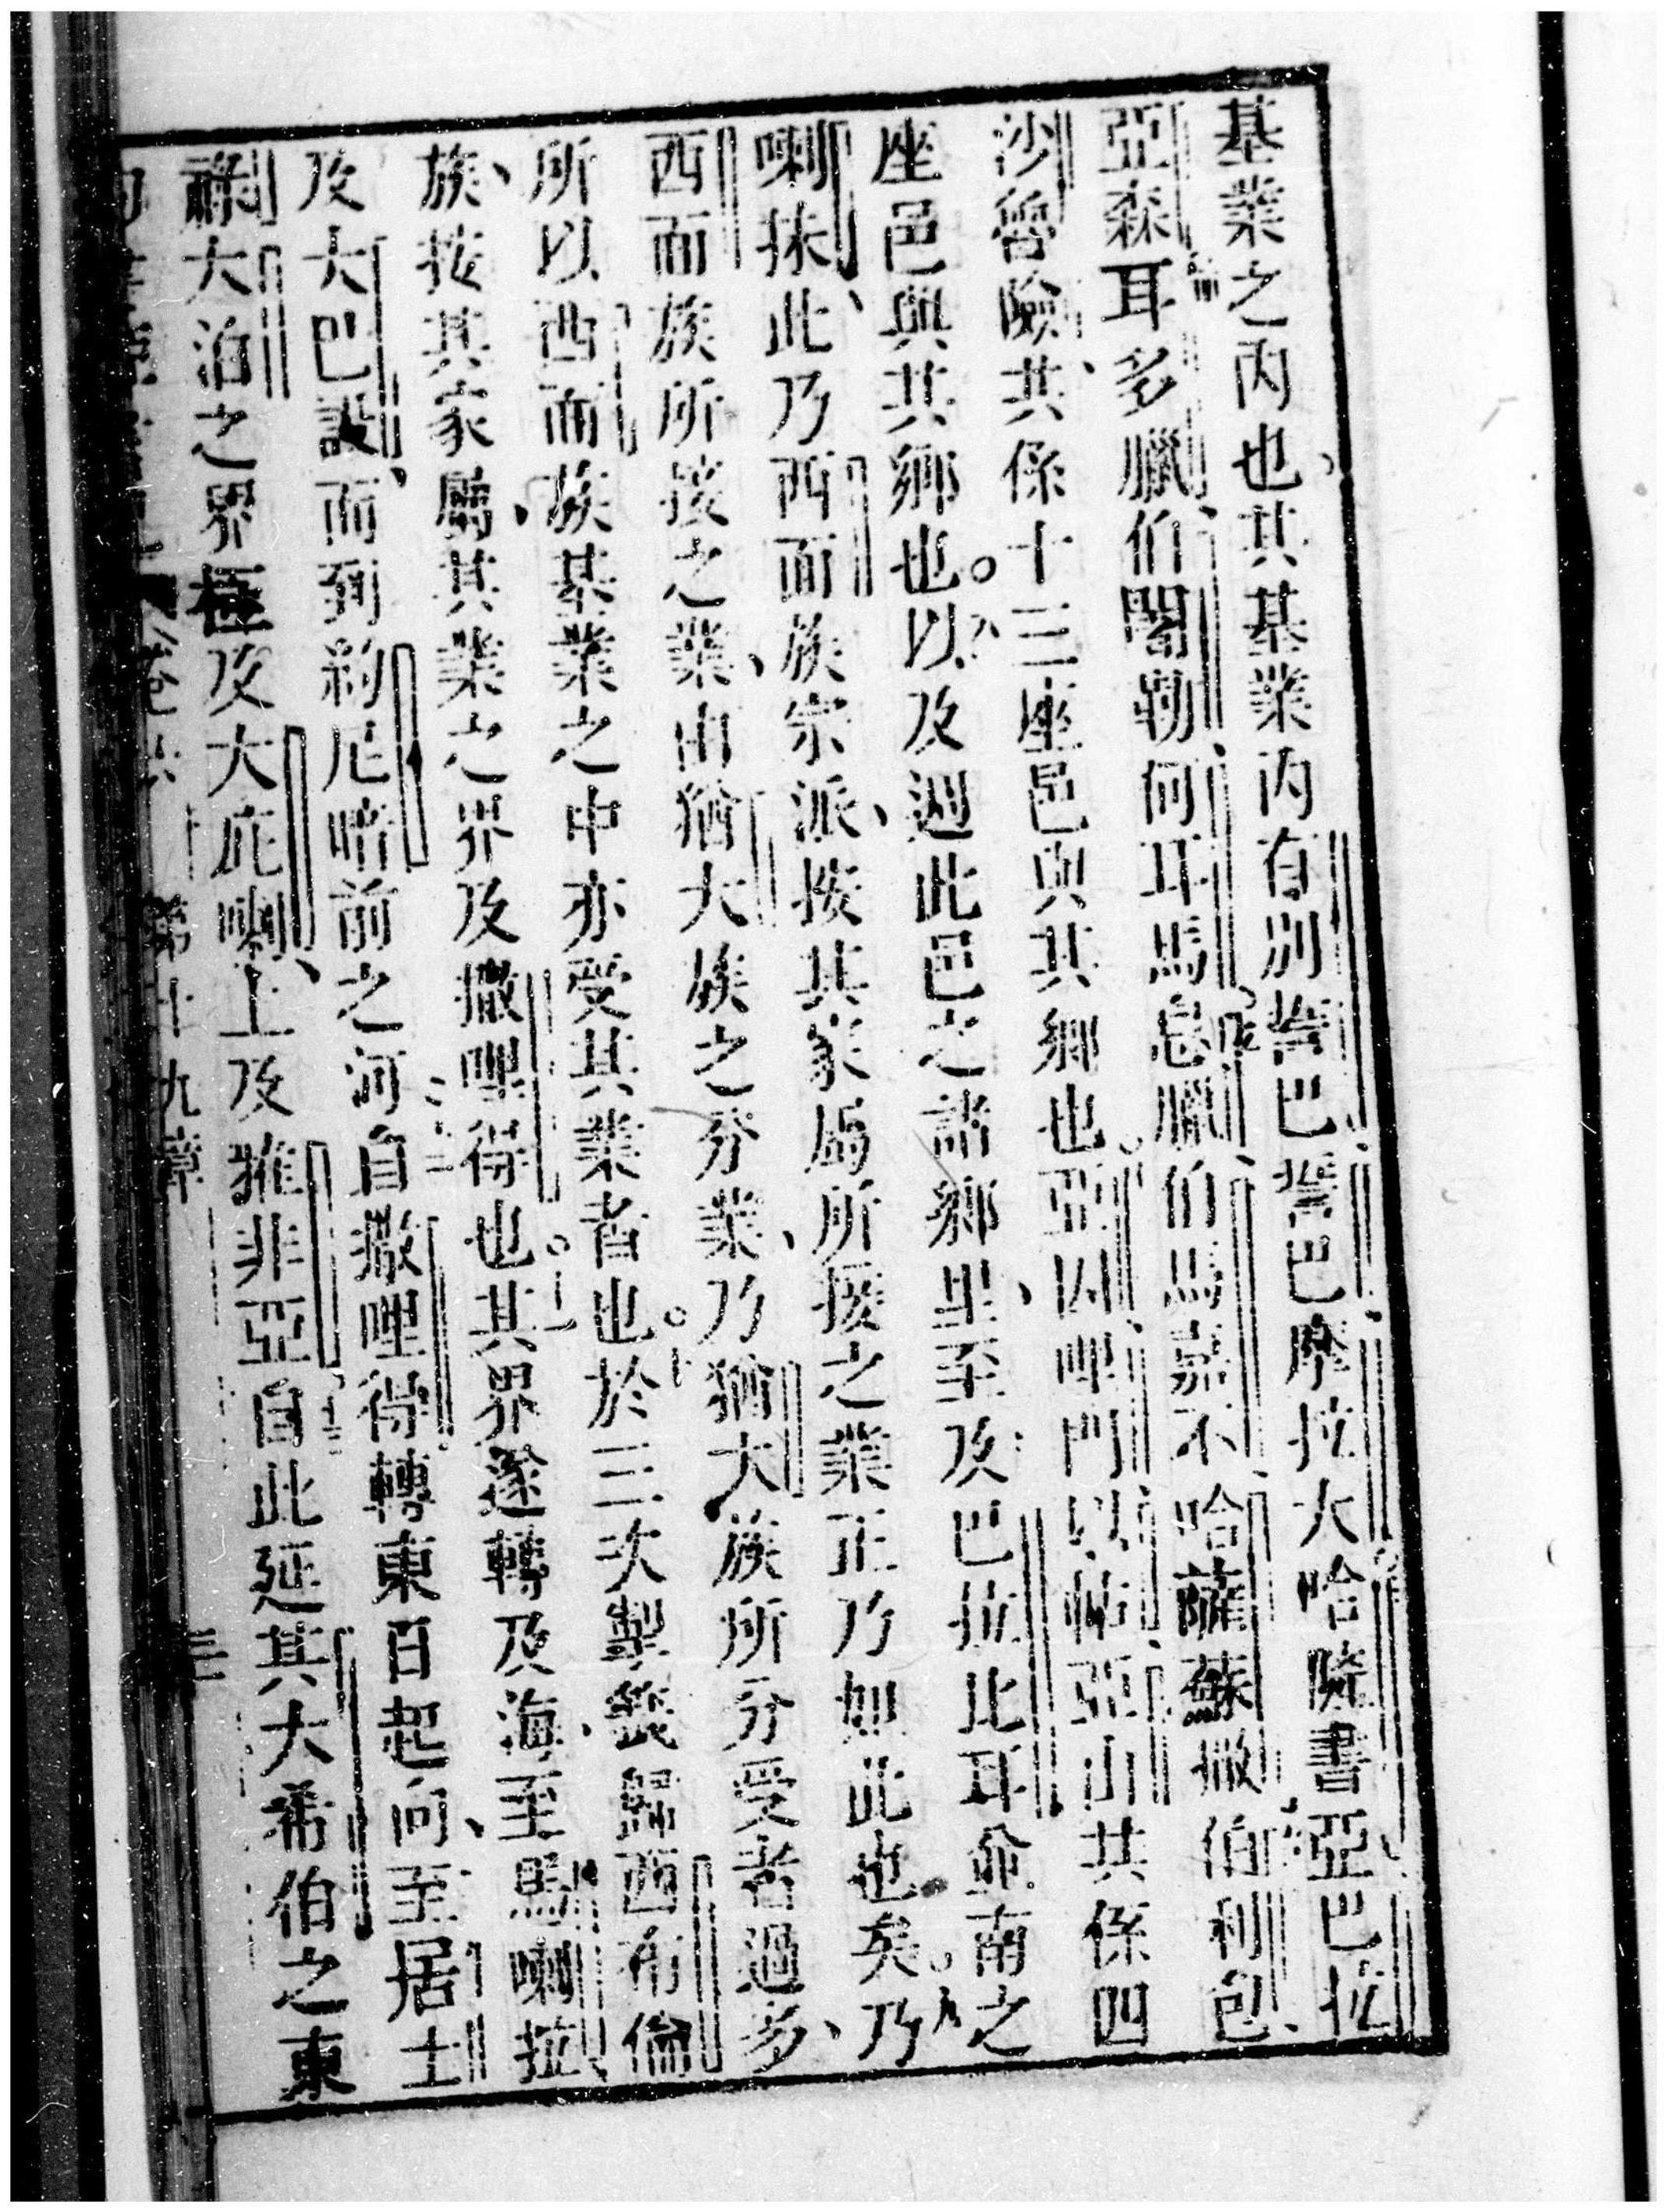 基業之內也其基業內有別誓巴誓巴摩拉大哈隡書亞巴拉
亞森耳多臘伯閣勒何耳馬息臘伯馬嘉不哈薩蘇撒伯利包
沙魯險共係十三座邑與其鄉也亞因哩門以帖亞山共係四
座邑與其鄉也以及週此邑之諸鄉里至及巴拉比耳並南之
喇抹此乃西面族宗派按其家屬所接之業正乃如此也矣乃
西面族所接之業由猶大族之分業乃猶大族所分受者過多
所以西面族基業之中亦受其業者也於三次掣籤歸西布倫
族按其家屬其業之界及撒哩得也其界遂轉及海至馬喇拉
及大巴設而到約尼暗前之河自撒哩得轉東日起向至居士
祿大泊之界極及大庇喇上及雅非亞自此延其大希伯之東
第十九章 三